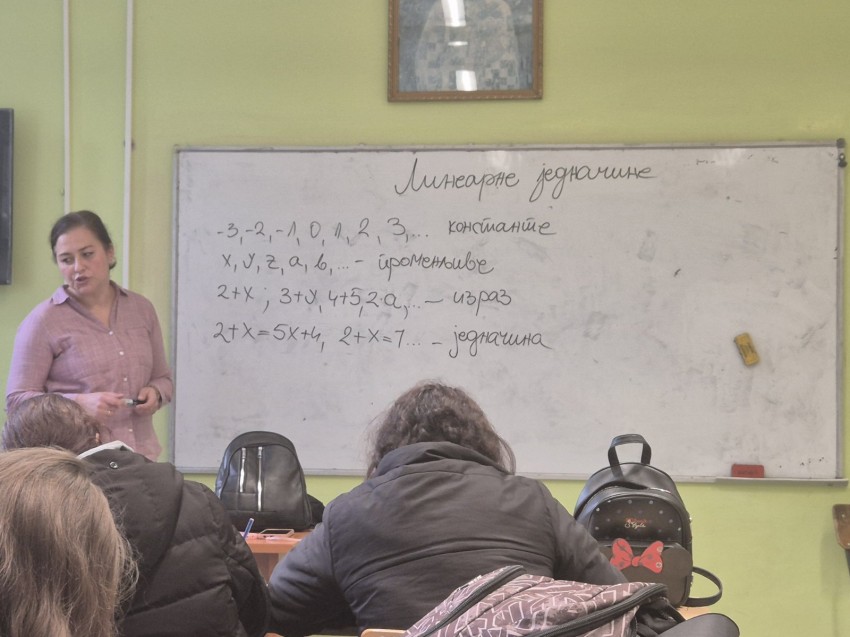 Линеарне једначине
-3, -2, -1, 0, 1, 2, 3, ... константе
x, y, z, a, b, ... - променљиве
2+x ; 3+y, 4+5, 2·a, ... - израз
2+x=5x+4, 2+x=7 ... - једначина